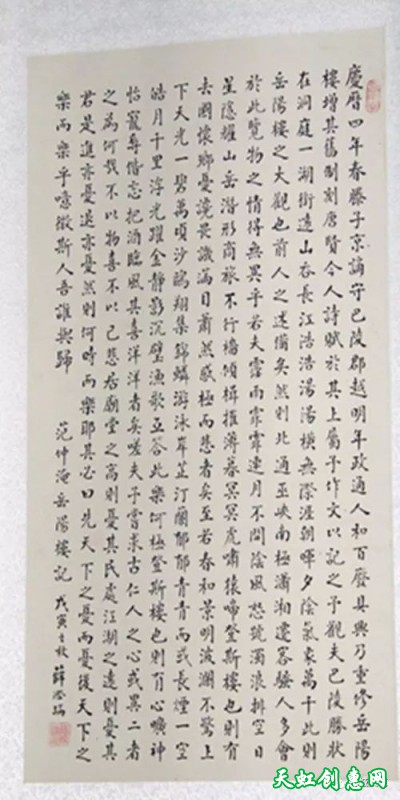 慶曆四年春滕子京謫守巴陵郡越明年政通人和百廢具興乃重修岳陽
樓增其舊制刻唐賢今人詩賦於其上屬予作文以記之予觀夫巴陵勝狀
在洞庭一湖銜遠山吞長江浩浩湯湯橫無際涯朝暉夕陰氣象萬千此則
岳陽樓之大觀也前人之述備矣然則北通巫峽南極瀟湘遷客騷人多會
於此覽物之情得無異乎若夫霪雨霏霏連月不開陰風怒號濁浪排空日
星隱耀山岳潛形商旅不行檣傾楫摧薄暮冥冥虎嘯猿啼登斯樓也則有
去國懷鄉憂讒畏譏滿目蕭然感極而悲者矣至若春和景明波瀾不驚上
下天光一碧萬頃沙鷗翔集錦鱗游泳岸芷汀蘭郁郁青青而或長煙一空
皓月千里浮光躍金靜影沉璧漁歌互答此樂何極登斯樓也則有心曠神
怡寵辱偕忘把酒臨風其喜洋洋者矣嗟夫予嘗求古仁人之心或異二者
之為何哉不以物喜不以己悲居廟堂之高則憂其民處江湖之遠則憂其
君是進亦憂退亦憂然則何時而樂耶其必曰先天下之憂而憂後天下之
樂而樂乎噫微斯人吾誰與歸 范仲淹岳陽樓記 戊寅之秋 薛
天虹创惠网